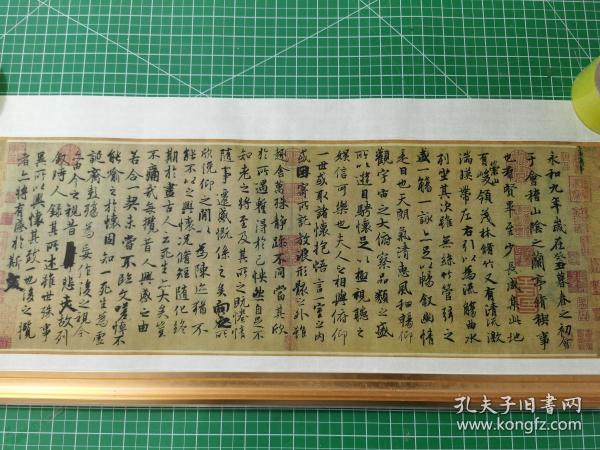 永和九年歲在癸丑暮春之初會
于會稽山陰之蘭亭脩稧事
也羣賢畢至少長咸集此地
有崇山峻領茂林脩竹又有清流激
湍暎帶左右引以為流觴曲水
列坐其次雖無絲竹管弦之
盛一觴一詠亦足以暢敘幽情
是日也天朗氣清惠風和暢仰
觀宇宙之大俯察品類之盛
所以遊目騁懷足以極視聽之
娛信可樂也夫人之相與俯仰
一世或取諸懷抱悟言一室之內
或因寄所託放浪形骸之外雖
趣舍萬殊靜躁不同當其欣
於所遇暫得於己怏然自足不
知老之將至及其所之既惓情
隨事遷感慨係之矣向之所
欣俛仰之間以為陳迹猶不
能不以之興懷況脩短隨化終
期於盡古人云死生亦大矣豈
不痛哉每攬昔人興感之由
若合一契未嘗不臨文嗟悼不
能喻之於懷固知一死生為虛
誕齊彭殤為妄作後之視今
亦由今之視昔悲夫故列
敘時人錄其所述雖世殊事
異所以興懷其致一也後之攬
者亦將有感於斯文
孔夫子旧書网
www.kongfz.com